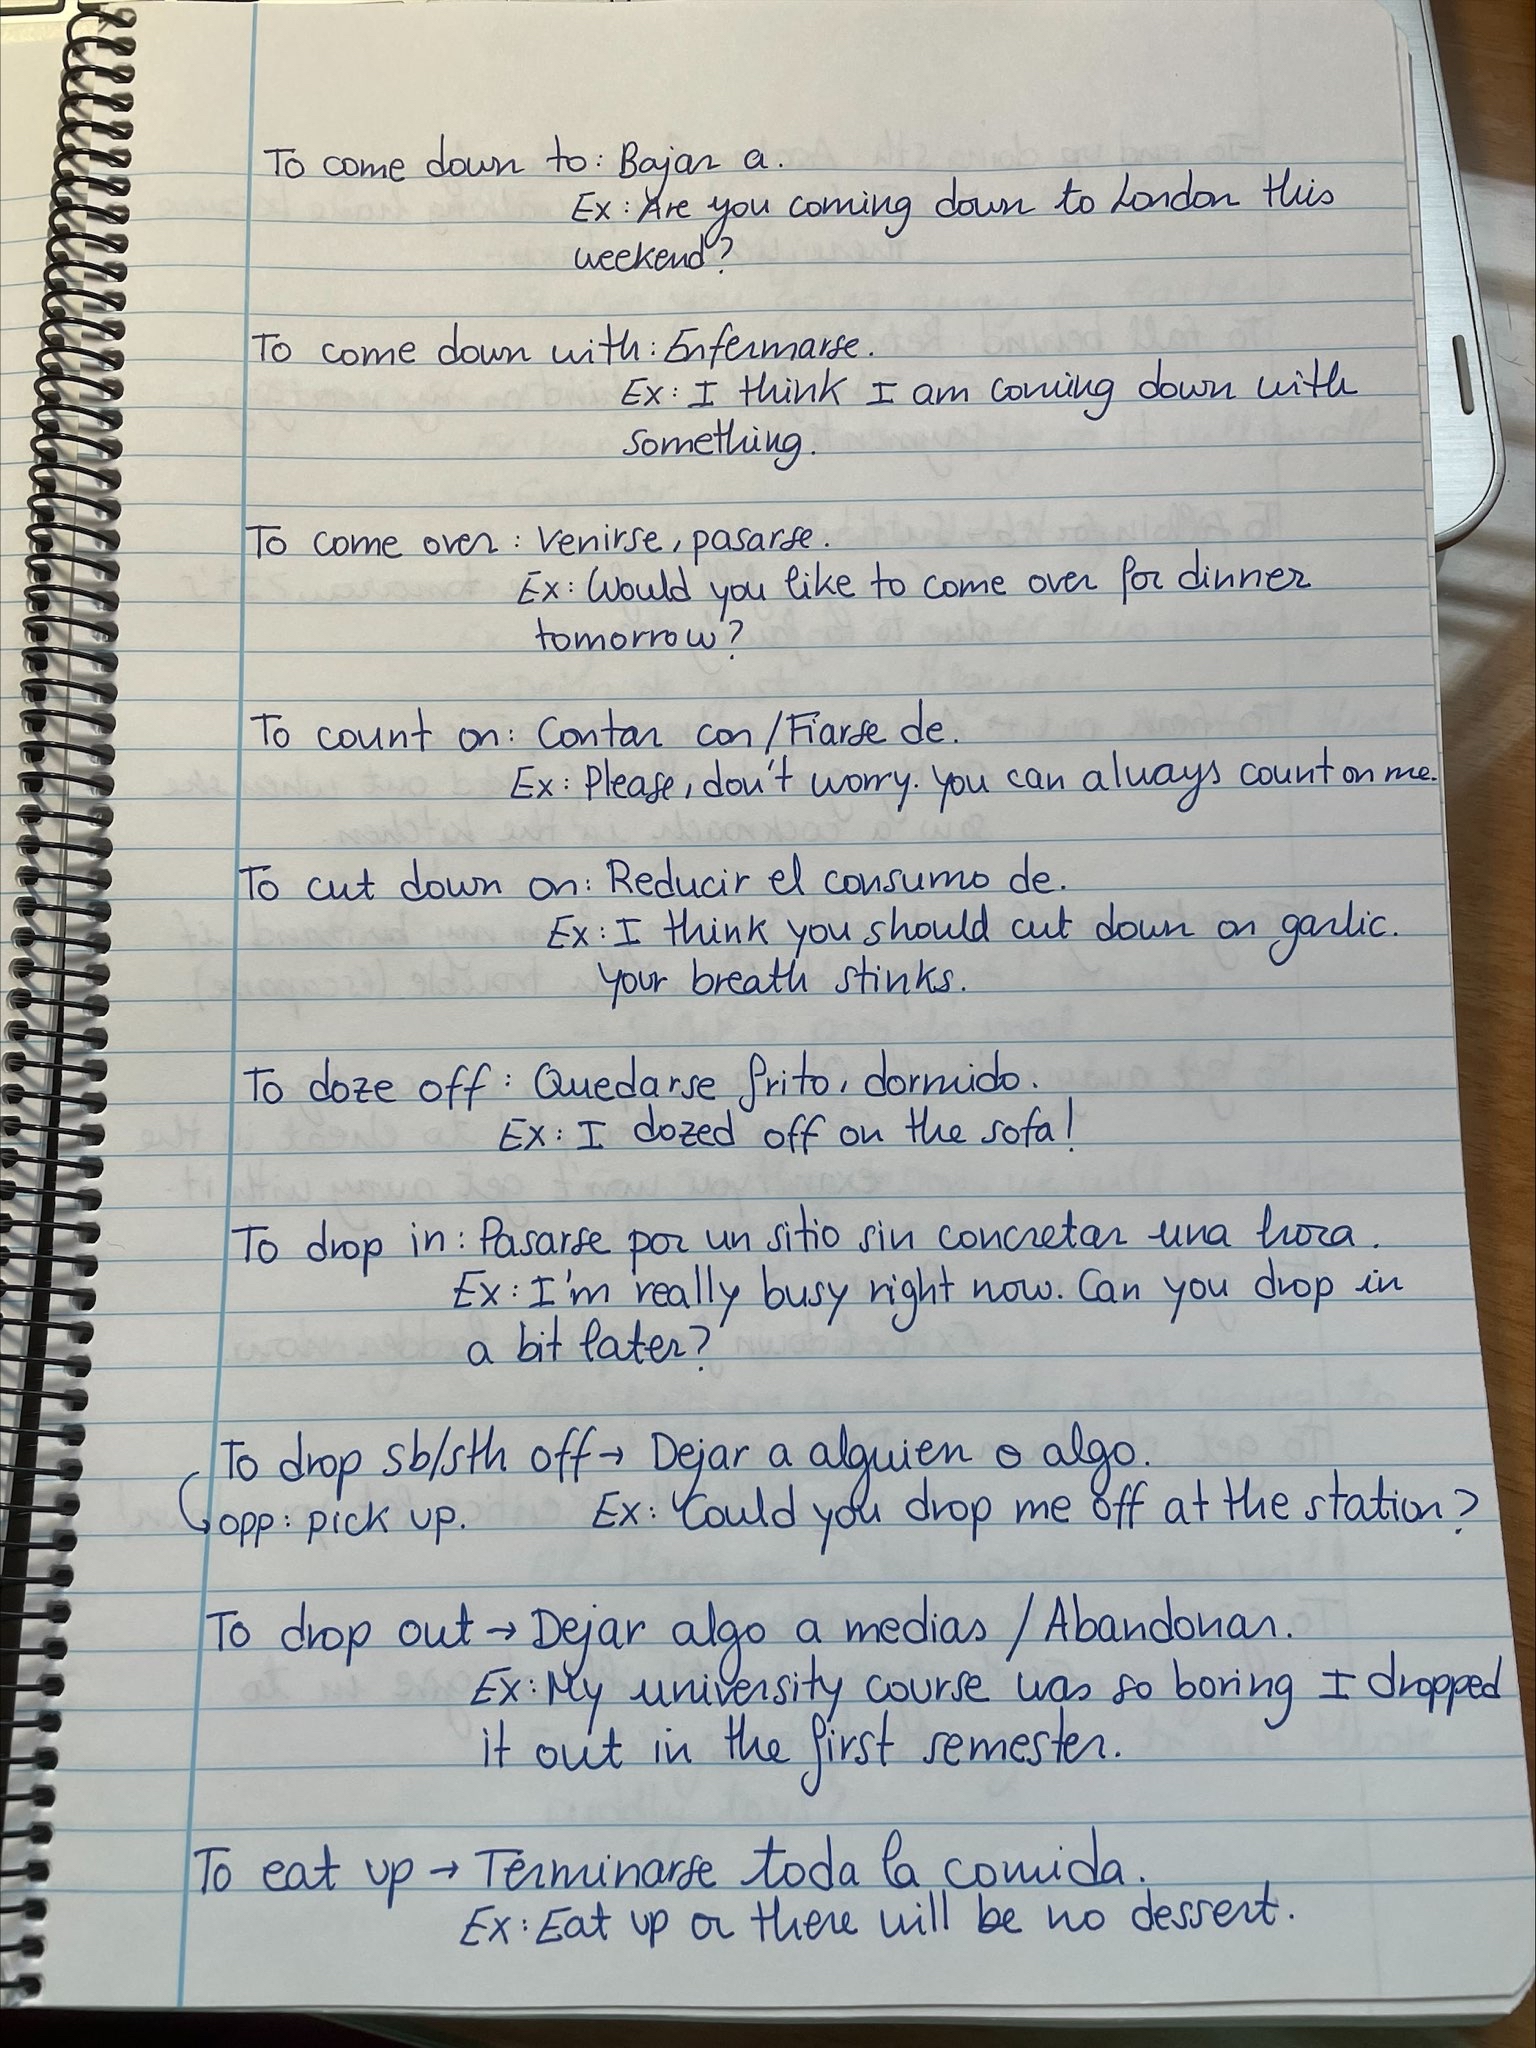 To come down to: Bajar a.
Ex: Are you coming down to London this
weekend?
To come down with: Enfermarse.
Ex: I think I am coming down with
something.
To come over: Venirse, pasarse.
Ex: Would you like to come over for dinner
tomorrow?
To count on: Contar con/Fiarse de.
Ex: Please, don't worry. You can always count on me.
To cut down on: Reducir el consumo de.
Ex: I think you should cut down on garlic.
Your breath stinks.
To doze off: Quedarse frito, dormido.
Ex: I dozed off on the sofa!
To drop in: Pasarse por un sitio sin concretar una hora.
Ex: I'm really busy right now. Can you drop in
a bit later?
To drop sb/sth off → Dejar a alguien o algo.
opp: pick up. Ex: Could you drop me off at the station?
To drop out → Dejar algo a medias / Abandonar.
Ex: My university course was so boring I dropped
it out in the first semester.
To eat up → Terminarse toda la comida.
Ex: Eat up or there will be no dessert.